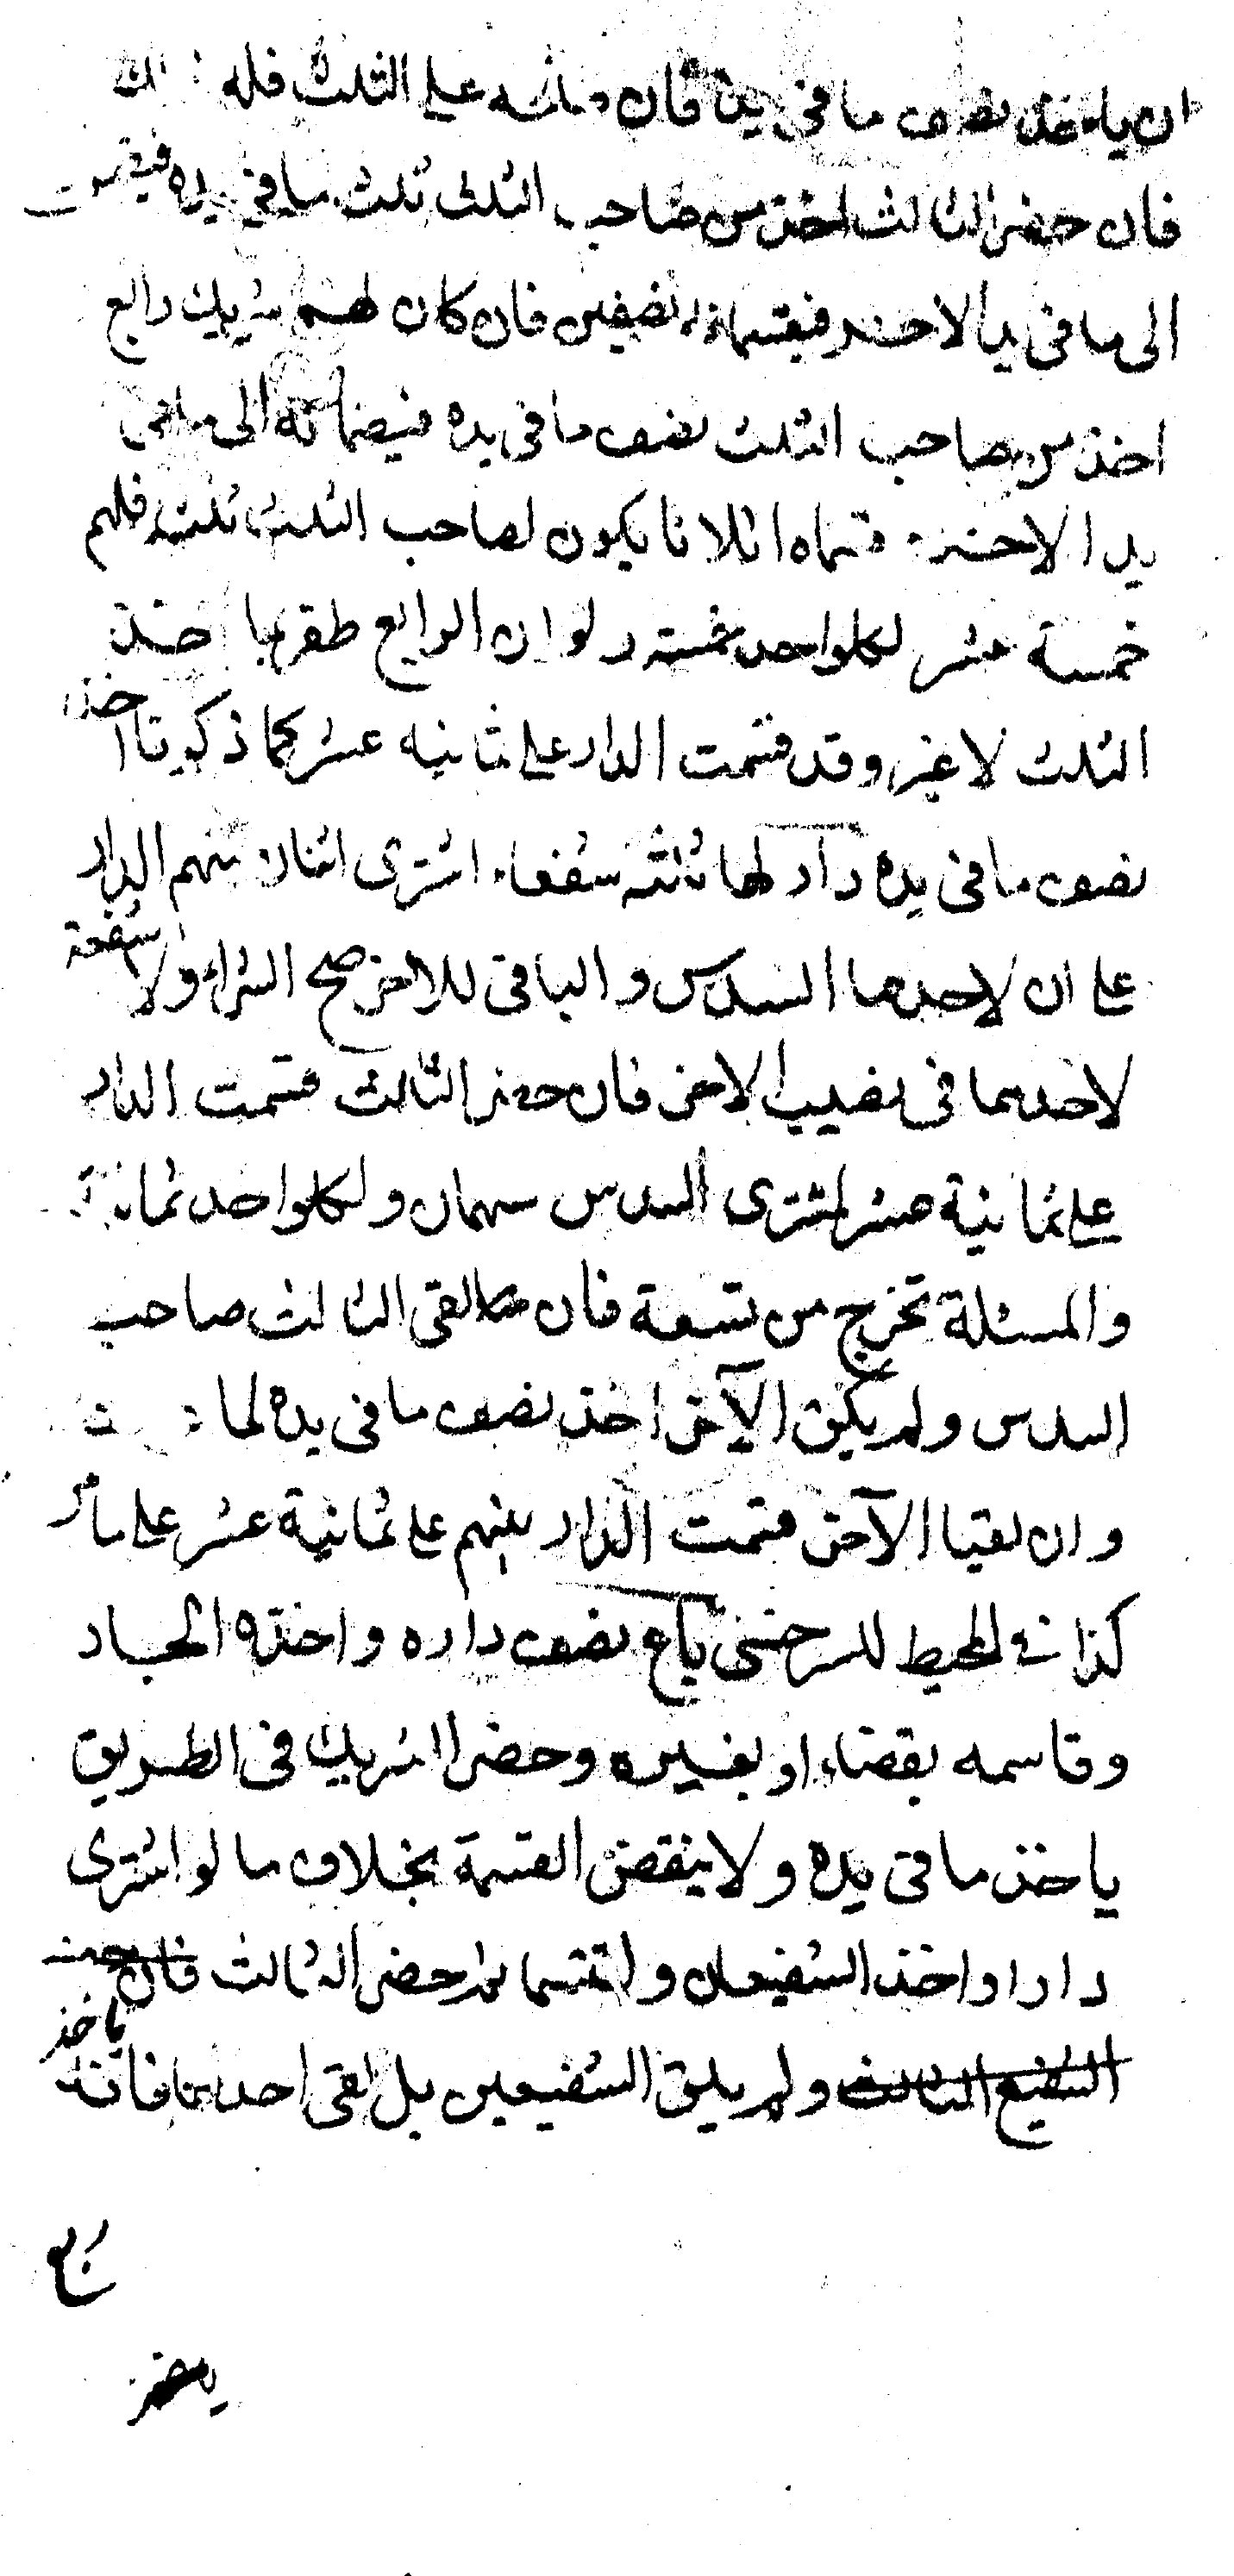 ان ياخذ نصف ما في يده فان صالحه على الثلث فله
فان حضر الثالث اخذ من صاحب الثلث ثلث ما في يده فيضمه
الى ما في يد الاخر فيقتسمانه نصفين فان كان لهم شريك رابع
اخذ من صاحب الثلث نصف ما في يده فيضمانه الى ما في
يد الاخر قسماه اثلاثا يكون لصاحب الثلث ثلثه فلهم
خمسة عشر لكل واحد خمسة ولو ان الرابع ظفر بها اخذ
الثلث لا غير وقد قسمت الدار على ثمانية عشر كما ذكرنا اخذ
نصف ما في يده دار لها ثلثة شفعاء اشترى اثنان منهم الدار
على ان لاحدهما السدس والباقي للاخر صح الشراء ولا شفعة
لاحدهما في نصيب الاخر فان حضر الثالث قسمت الدار
على ثمانية عشر لمشترى السدس سهمان ولكل واحد ثمانية
والمسئلة تخرج من تسعة فان لقى الثالث صاحب
السدس ولم يلق الآخر اخذ نصف ما في يده لما
وان لقيا الآخر قسمت الدار بينهم على ثمانية عشر على ما مر
كذا في المحيط للسرخسى باع نصف داره واخذه الجار
وقاسمه بقضاء او بغيره وحضر الشريك في الطريق
ياخذ ما في يده ولا ينقض القسمة بخلاف ما لو اشترى
دارا واخذ الشفيعان واقتسما ثم حضر الثالث فان حضر
الشفيع الثالث ولم يلق الشفيعين بل لقى احدهما فانه ياخذ